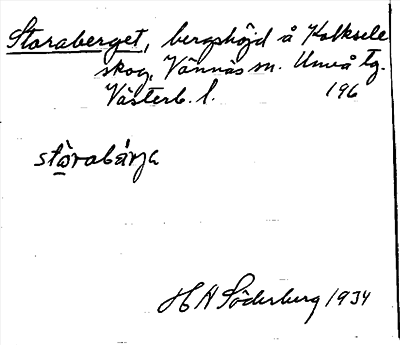 Storaberget, bergshöjd å Kolksele
skog, Vännäs sn. Umeå tg.
Västerb. l. 196
stòrabärja
H A Söderburg 1934